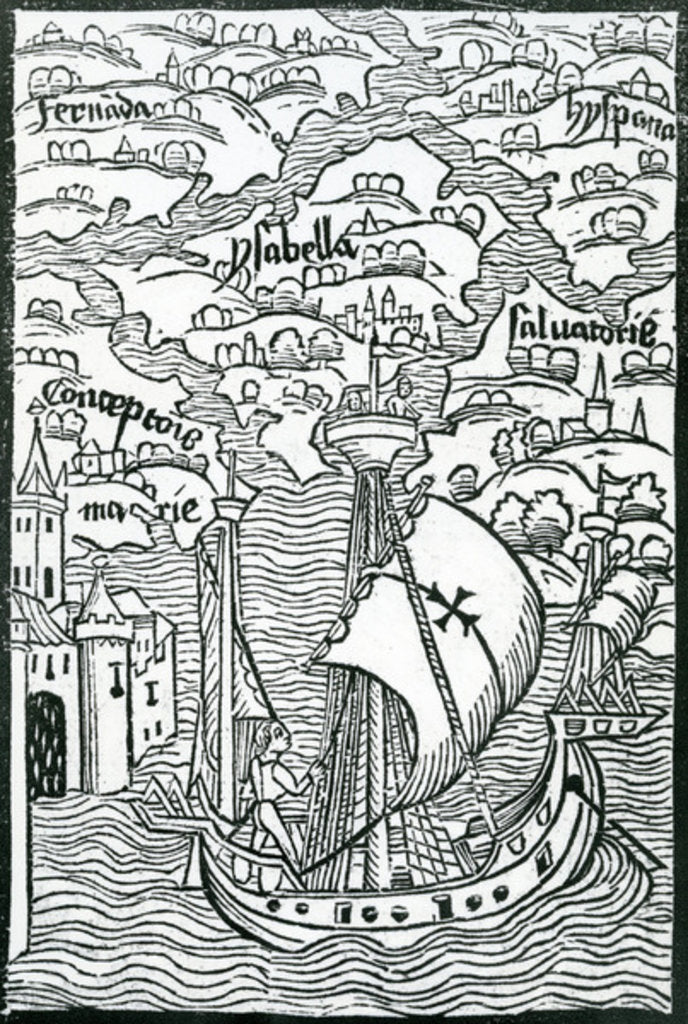 Fernãda
hyspana
ysabella
saluatorie
Conceptois
marie